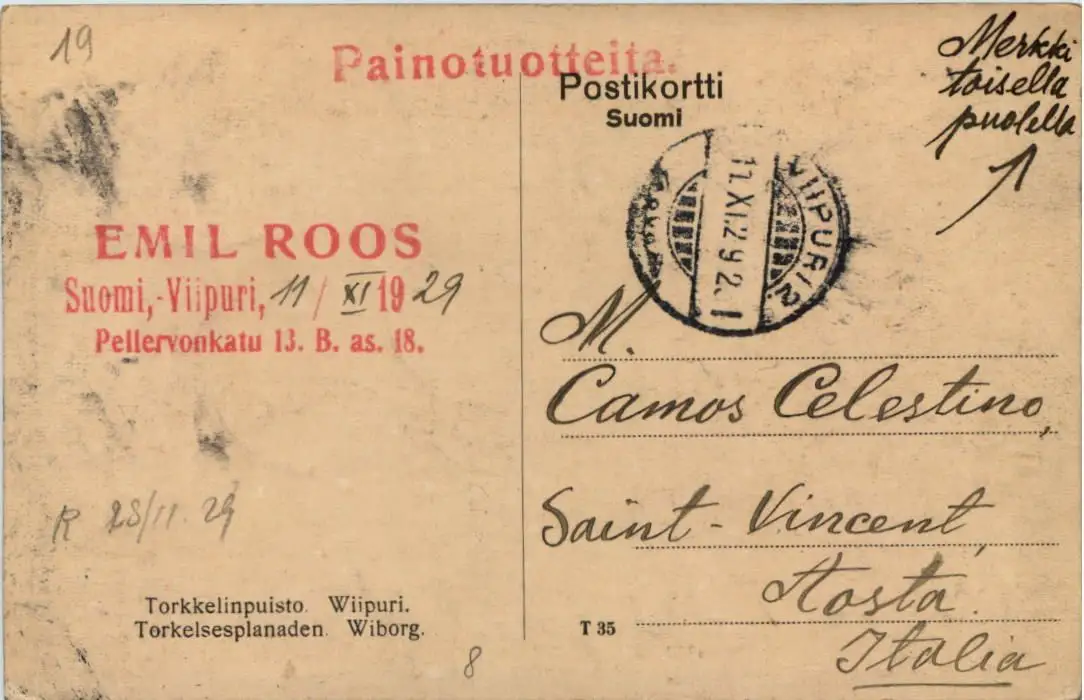 19
Painotuotteita.
Postikortti
Suomi
Merkki
toisella
puolella
EMIL ROOS
Suomi,-Viipuri, 11/XI 1929
Pellervonkatu 13. B. as. 18.
VIIPURI 2.
11.XI.29 2.
M.
Camos Celestino,
Saint-Vincent,
Aosta.
Italia
R 23/11.29
Torkkelinpuisto. Wiipuri.
Torkelsesplanaden. Wiborg.
T 35
8